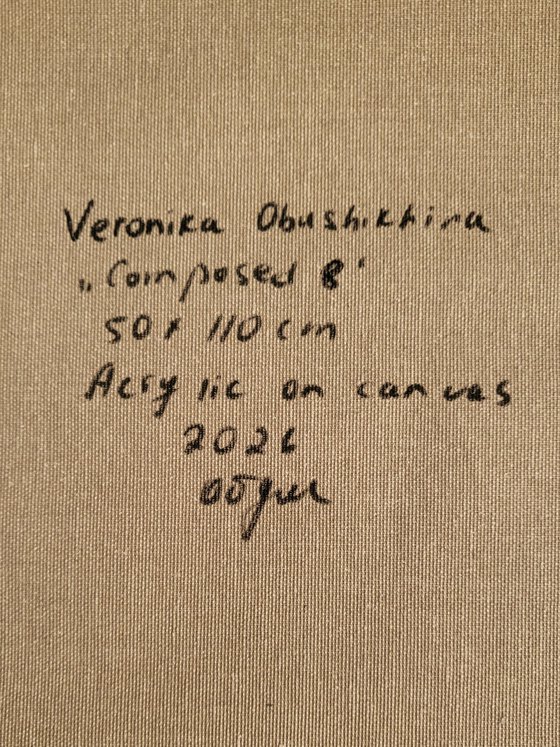 Veronika Obushikhina
„Composed 8"
50 x 110 cm
Acrylic on canvas
2026